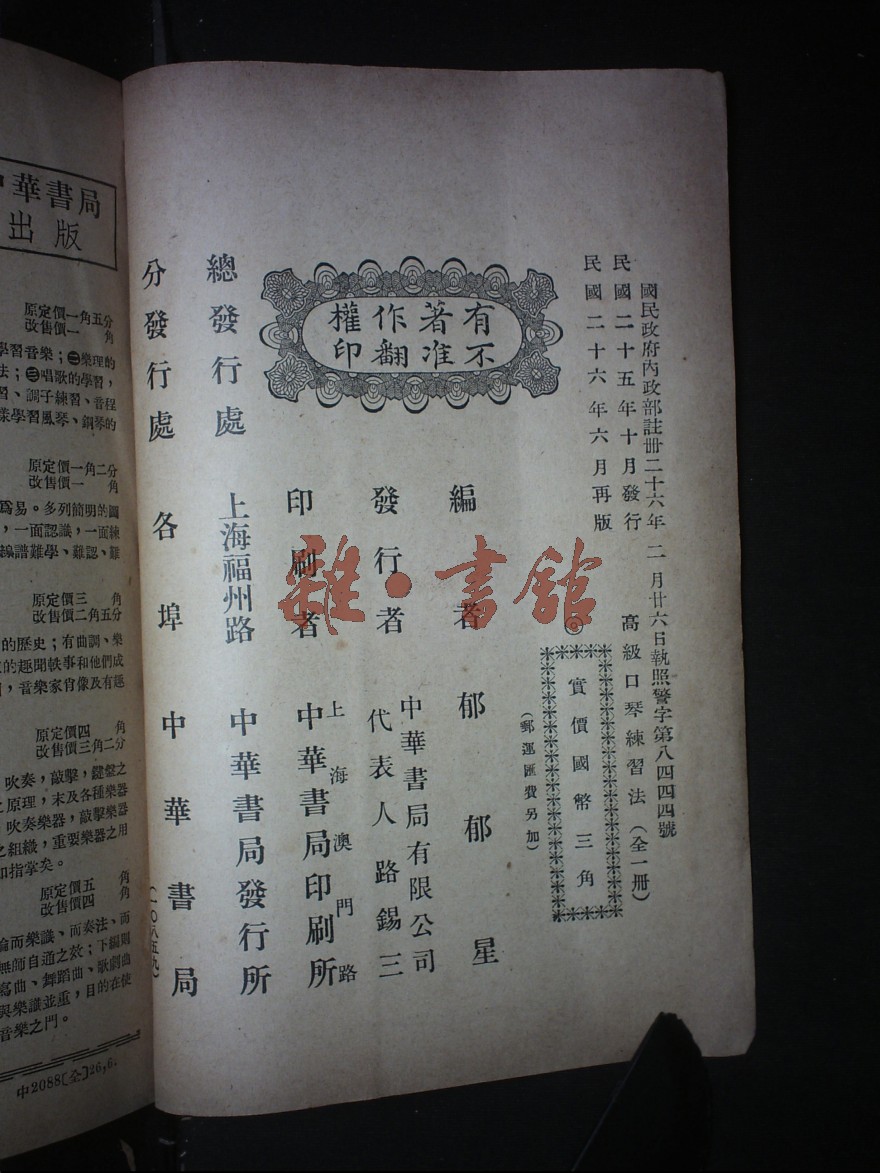 國民政府內政部註册二十六年二月廿六日執照警字第八四四四號
民國二十五年十月發行
民國二十六年六月再版
高級口琴練習法（全一册）
◎實價國幣三角
（郵運匯費另加）
有著作權
不准翻印
編者 郁郁星
發行者 中華書局有限公司
代表人路錫三
印刷者 上海澳門路
中華書局印刷所
總發行處 上海福州路 中華書局發行所
分發行處 各埠 中華書局
（一〇八五九）
雜·書館
華書局
出版
原定價一角五分
改售價一角
學習音樂；㊁樂理的
法；㊂唱歌的學習，
習、調子練習、音程
學習風琴、鋼琴的
原定價一角二分
改售價一角
爲易。多列簡明的圖
，一面認識，一面練
譜難學、難認、難
原定價三角
改售價二角五分
的歷史；有曲調、樂
的趣聞軼事和他們成
，音樂家肖像及有趣
原定價四角
改售價三角二分
吹奏，敲擊，鍵盤之
之原理，末及各種樂器
吹奏樂器，敲擊樂器
之組織，重要樂器之用
如指掌矣。
原定價五角
改售價四角
而樂識、而奏法、而
無師自通之效；下編則
曲、舞蹈曲、歌劇曲
與樂識並重，目的在使
音樂之門。
中2088(仝)26,6.